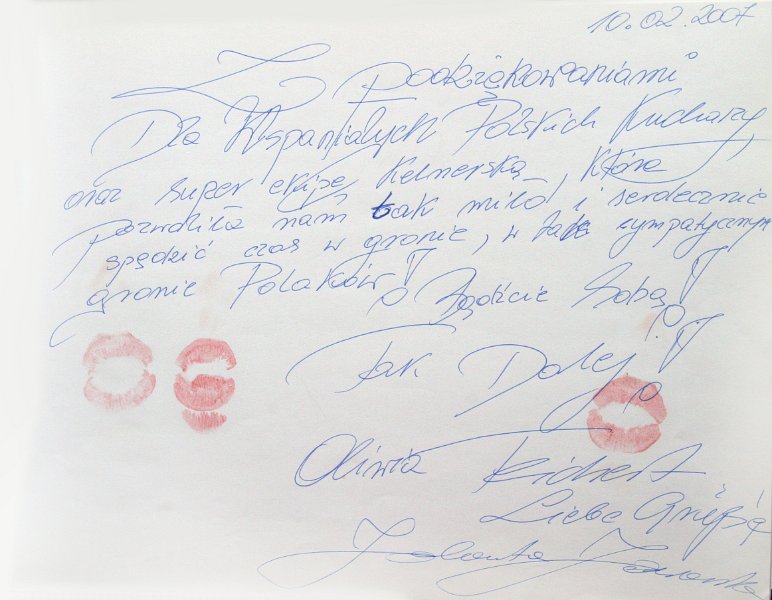 10.02.2007
Z podziękowaniami
Dla Wspaniałych Polskich Kucharzy,
oraz super ekipę Kelnerską, która
pozwoliła nam tak miło i serdecznie
spędzić czas w gronie, w tak sympatycznym
gronie Polaków!
Bądźcie Sobą!
Tak Dalej!
Oliwia Richert
Liebe Grüße
Jolanta